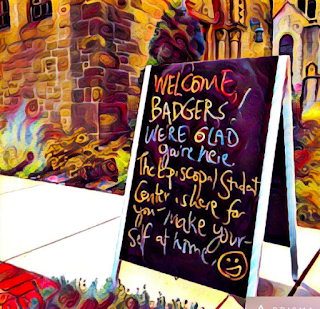 WELCOME,
BADGERS!
WE'RE GLAD
you're here.
The Episcopal Student
Center is here for
you - make your-
self at home
PRISMA